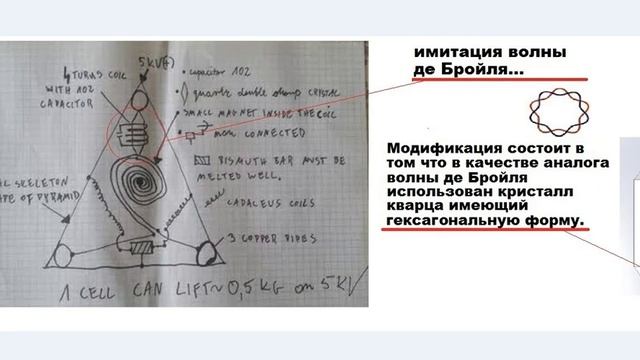 5KV(+)
4 TURNS COIL
WITH 102
CAPACITOR
• capacitor 102
quartz double
CRISTAL
• SMALL MAGNET INSIDE THE COIL
CONNECTED
BISMUTH BAR MUST BE
MELTED WELL.
AL SKELETON
APE OF PYRAMID
CADACEUS COILS
3 COPPER PIPES
1 CELL CAN LIFT ~ 0,5 KG on 5 KV
имитация волны
де Бройля...
Модификация состоит в
том что в качестве аналога
волны де Бройля
использован кристалл
кварца имеющий
гексагональную форму.